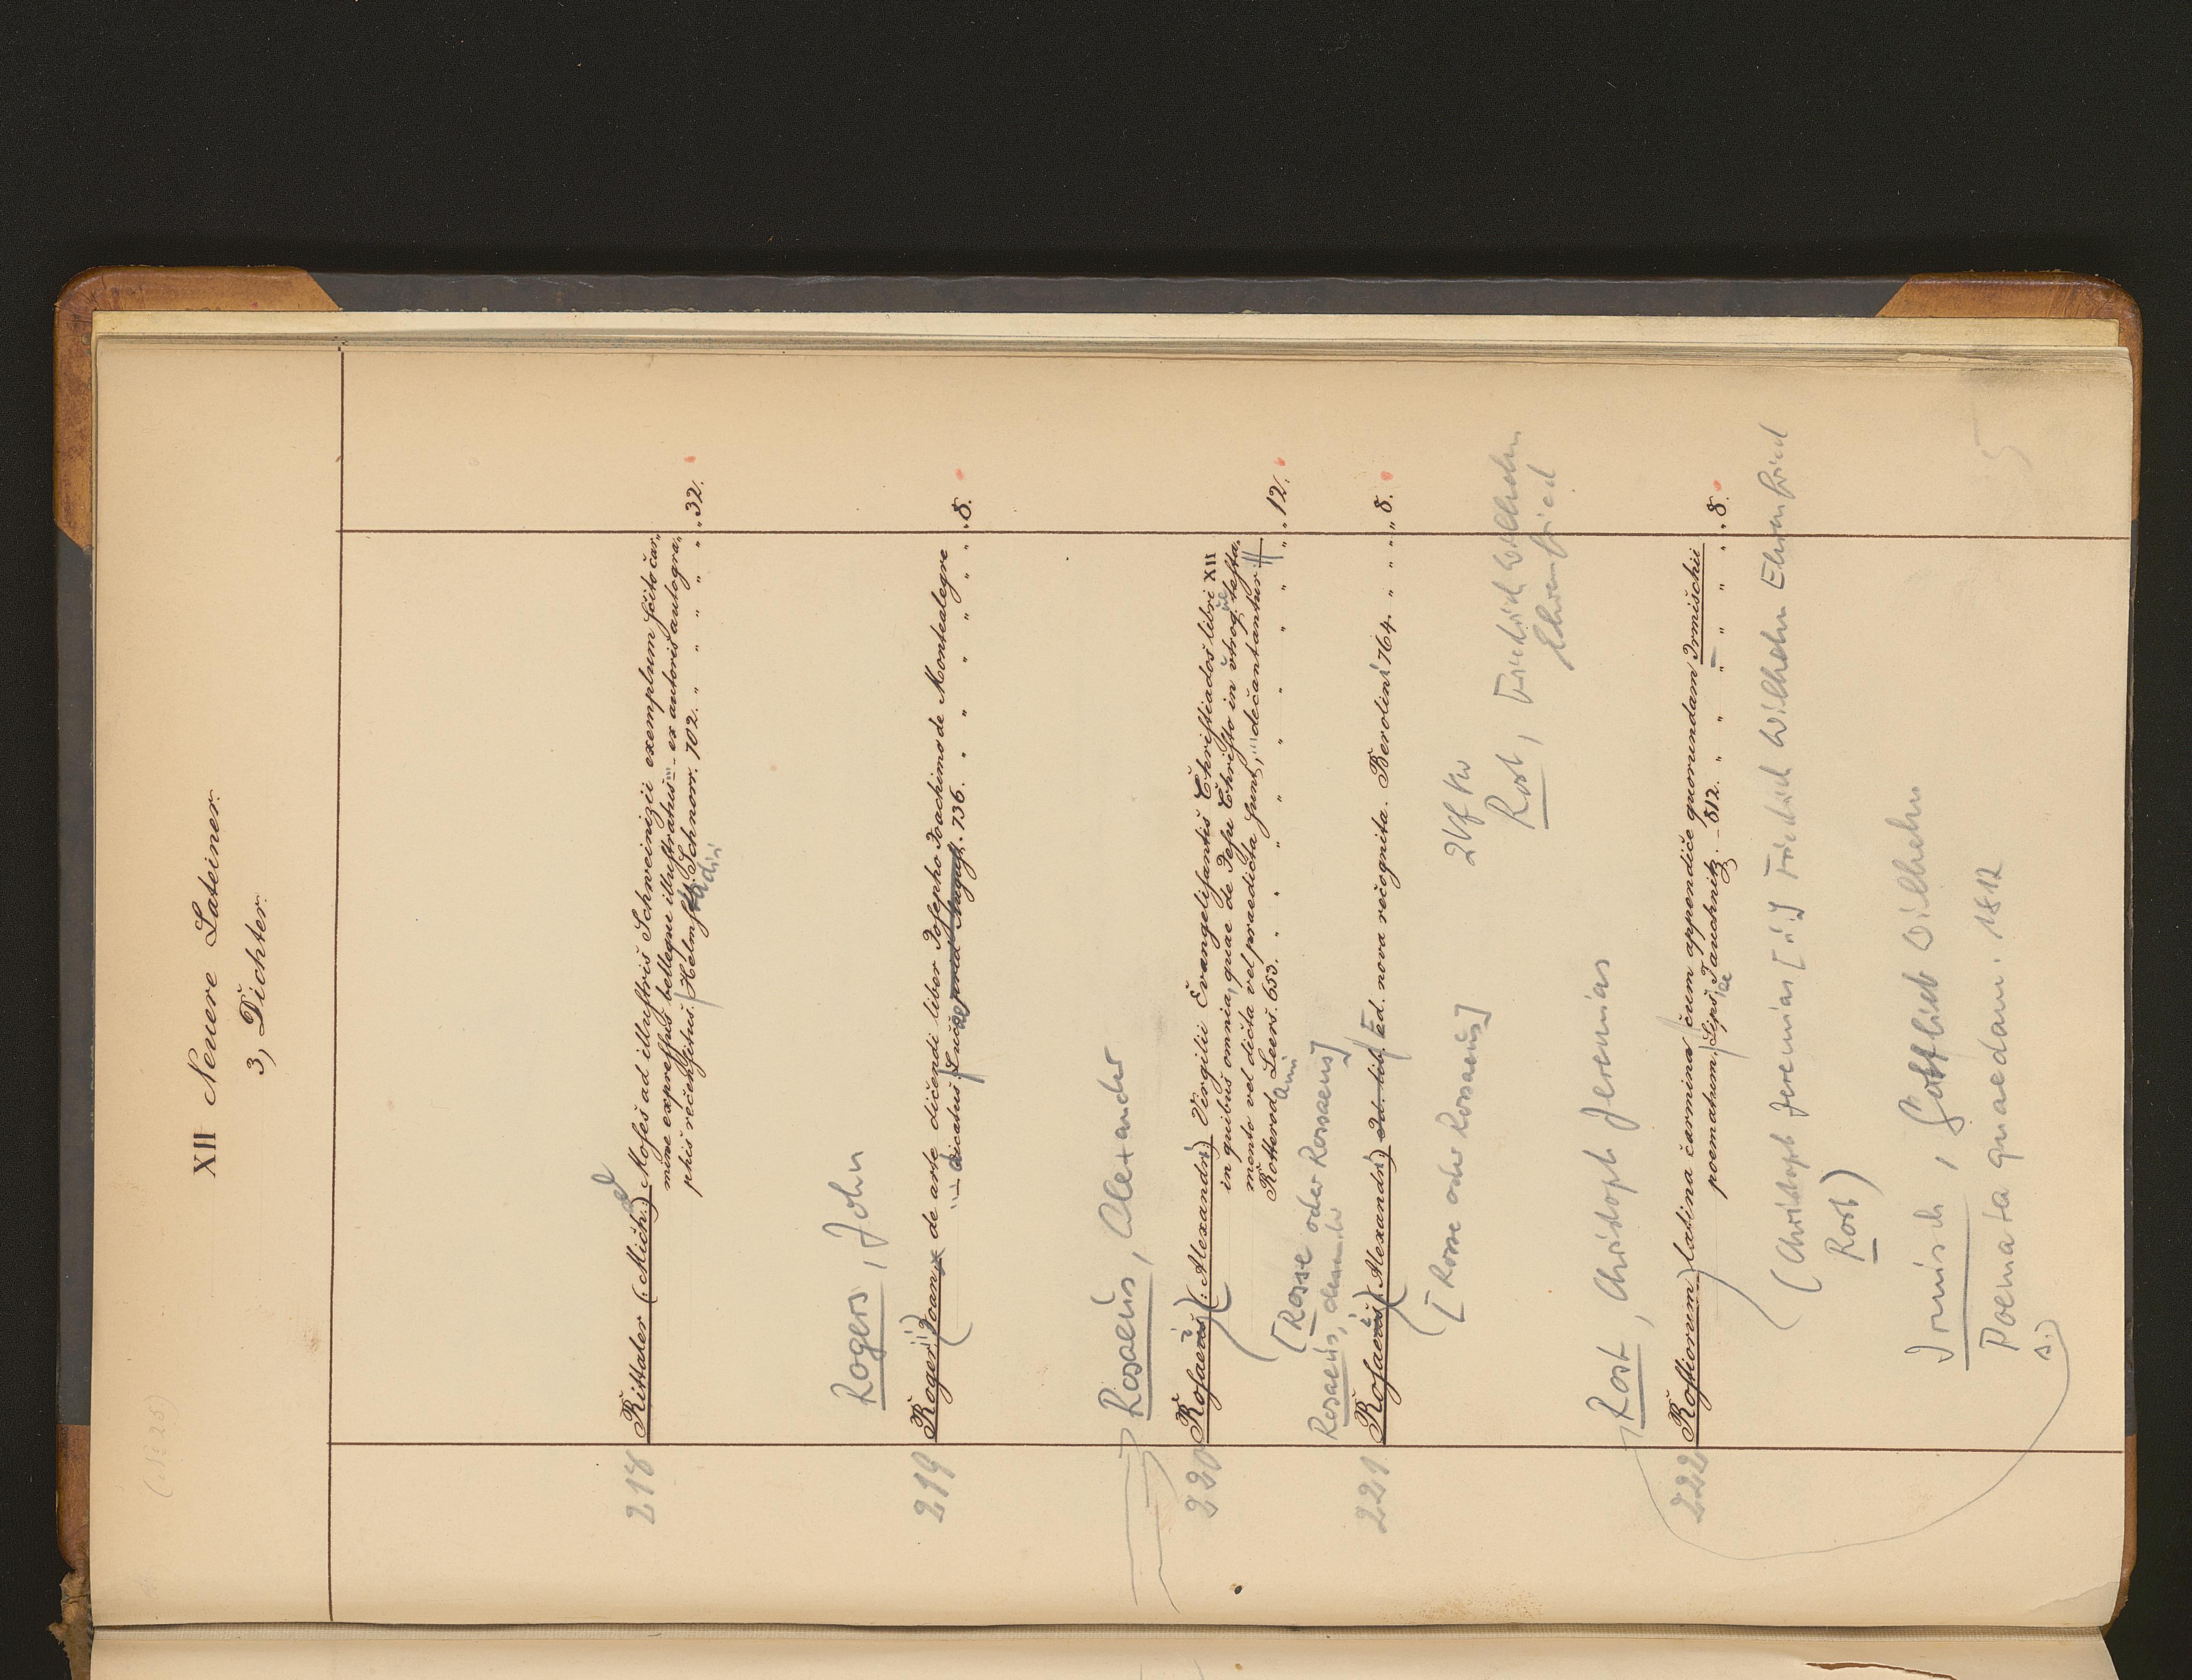 XII Neuere Lateiner.
3, Dichter.
218 Rittaler (: Mich.) Moses ad illustris Schweinizii exemplum scito car„
el
mine expressus belleque illustratus — ex autoris autogra„
phis recensitus. Helmst. Schnorr. 702. „ „ „ „ „ „ 32.
adii
Rogers, John
219 Rogerii Joan. de arte dicendi liber Josepho Joachimo de Montealegre
— dicatus Lucae 736. „ „ „ „ „ „ 8.
Rosaeus, Alexander
220 Rosaeus (: Alexandri) Virgilii Evangelisantis Christiados libri XII
in quibus omnia, quae de Jesu Christo in utroq. testa„
ue
mento vel dicta vel praedicta sunt, decantantur
Rotterod. Leers. 653. „ „ „ „ „ „ „ „ 12.
ami
[Rosse oder Rossaeus]
Rosaeus, Alexander
221 Rosaeus (: Alexandri) Id. lib. Ed. nova recognita. Berolini 764. „ „ „ „ 8.
[Rosse oder Rossaeus]
Rost, Friedrich Wilhelm
Ehrenfried
Rost, Christoph Jeremias
222 Rostiorum latina carmina cum appendice quorundam Irmischii
poematum. Lips. Tauchnitz. 812. „ „ „ „ „ „ 8.
iae
(Christoph Jeremias [u.] Friedrich Wilhelm Ehrenfried
Rost)
Irmisch, Gottlieb Wilhelm
Poemata quaedam. 1812
s.